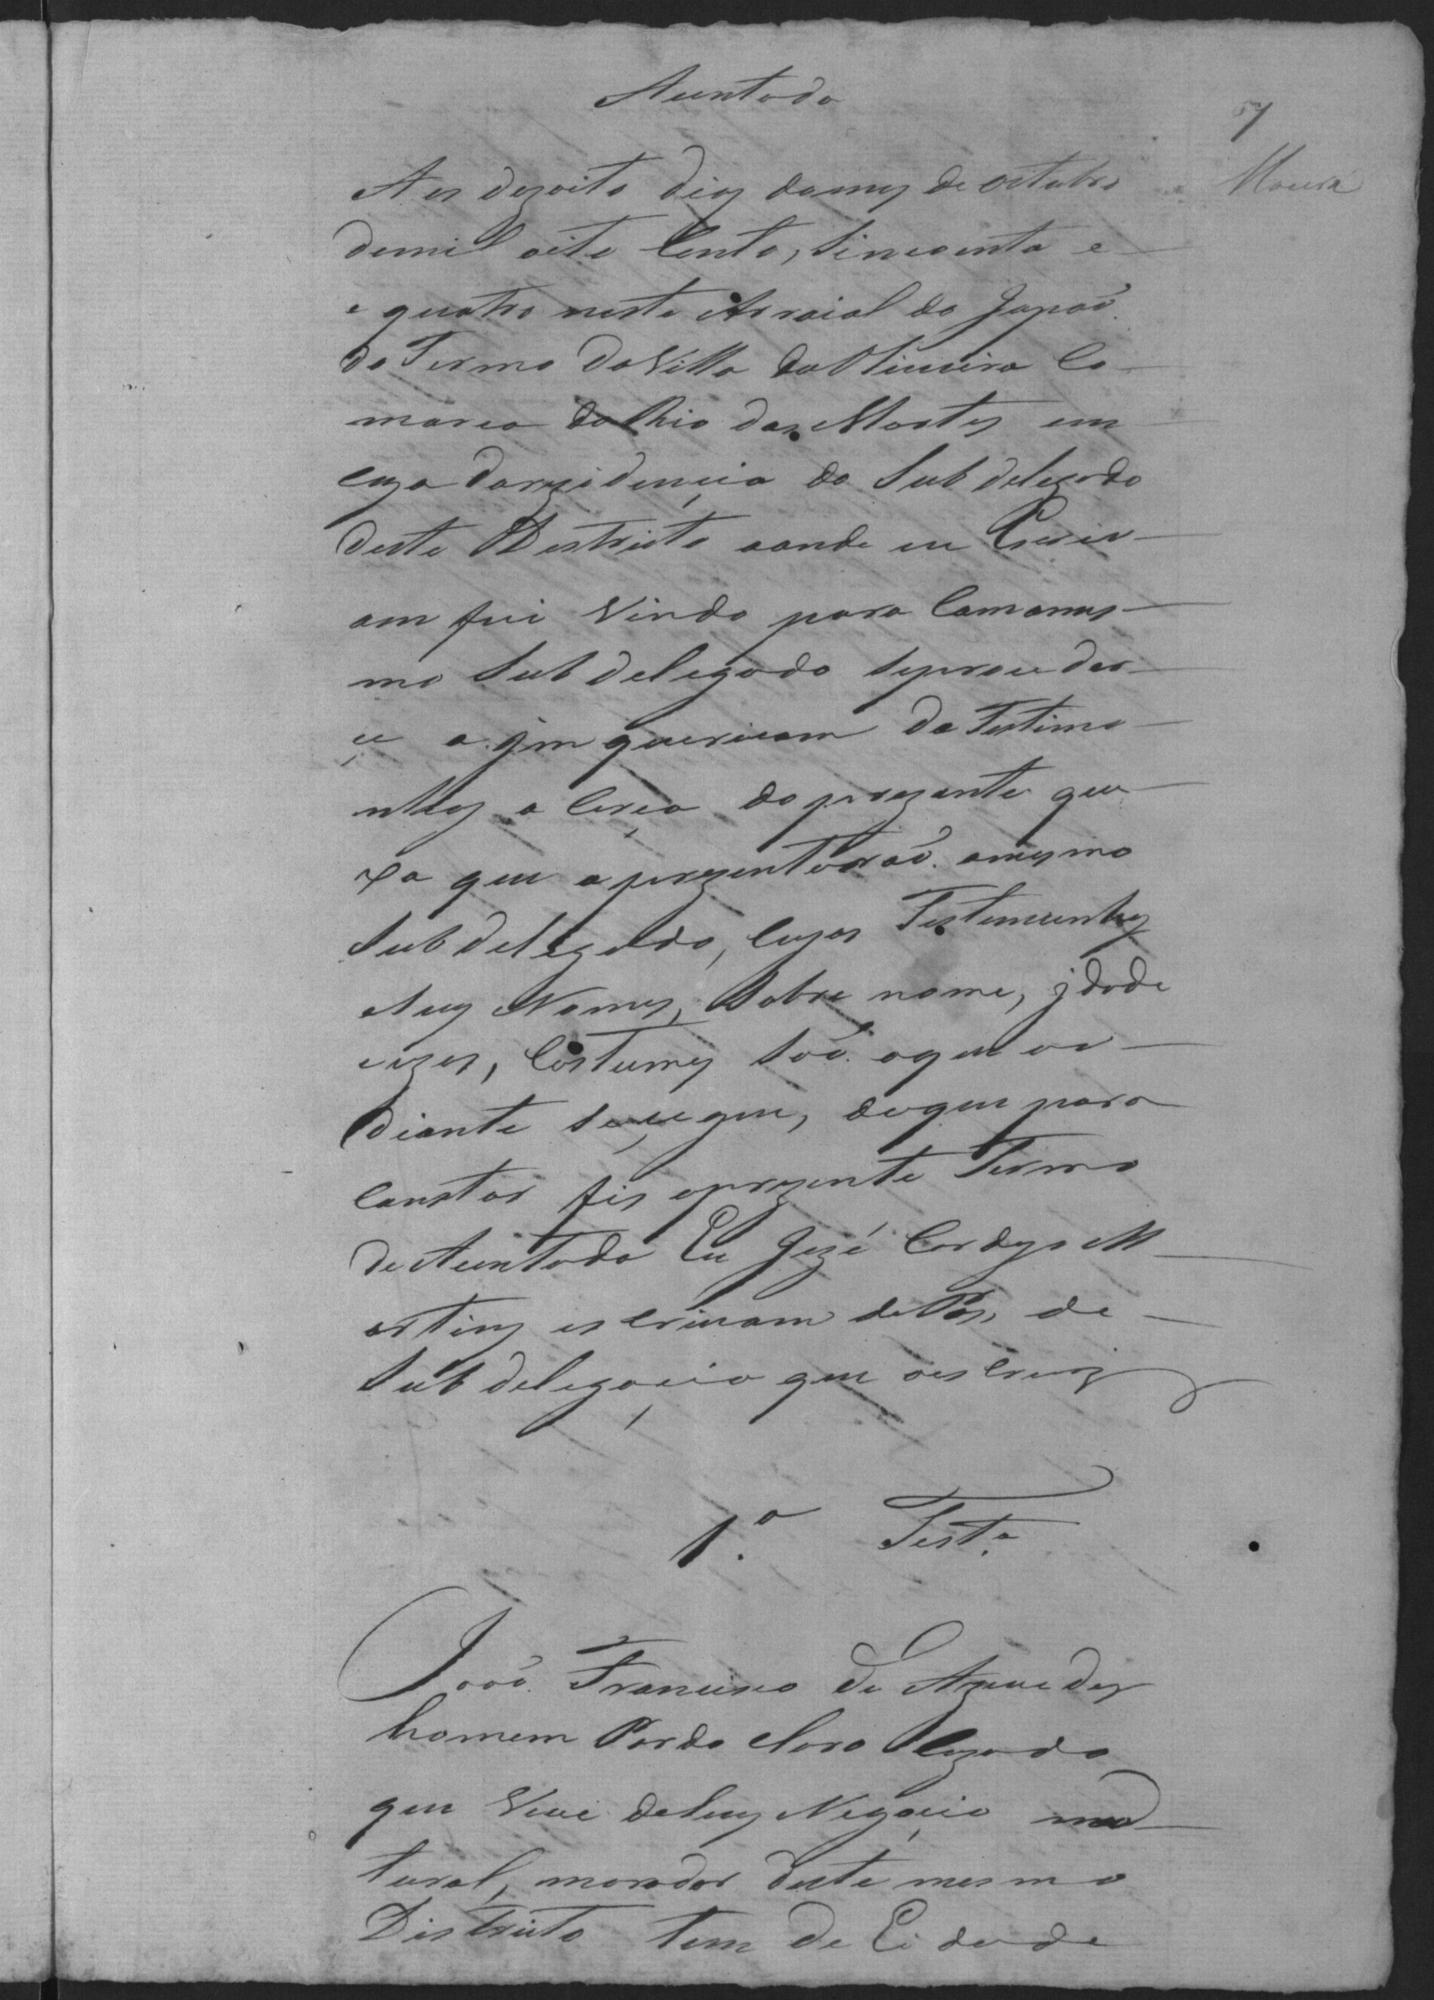 Auntada
57
Moura
Aos dezoito dias domes de outubro
demil oito Cento, Sincoenta e
e quatro neste Arraial do Japaõ
do Termo da Villa da Oliveira Co
marca do Rio das Mortes em
caza darezidencia do Sub delegado
deste Destricto aonde eu Escriv
am fui Vindo para Comomes
mo Sub delegado seproceder
ce a jmquericam de Testimo
nhas a Cerca do prezente que
xa que aprezentaraõ. amesmo
Sub delegado, cujas Testemunhas
Seus Nomes, Sobre nome, jdade
cuzos, Costumes Saõ. oque ao
diante Seçegue, deque para
Constar fis oprezente Termo
de Auntada Eu Jozé Cardozo M
artins escrivam de Pas, de
Sub delegaçcia que oescrevj
1.a Test.a
Joaõ. Francisco de Azevedes
homem Pardo Claro Cazado
que Vive deSeus Negoçio na
tural, morador deste mesmo
Districto tem de Eidade